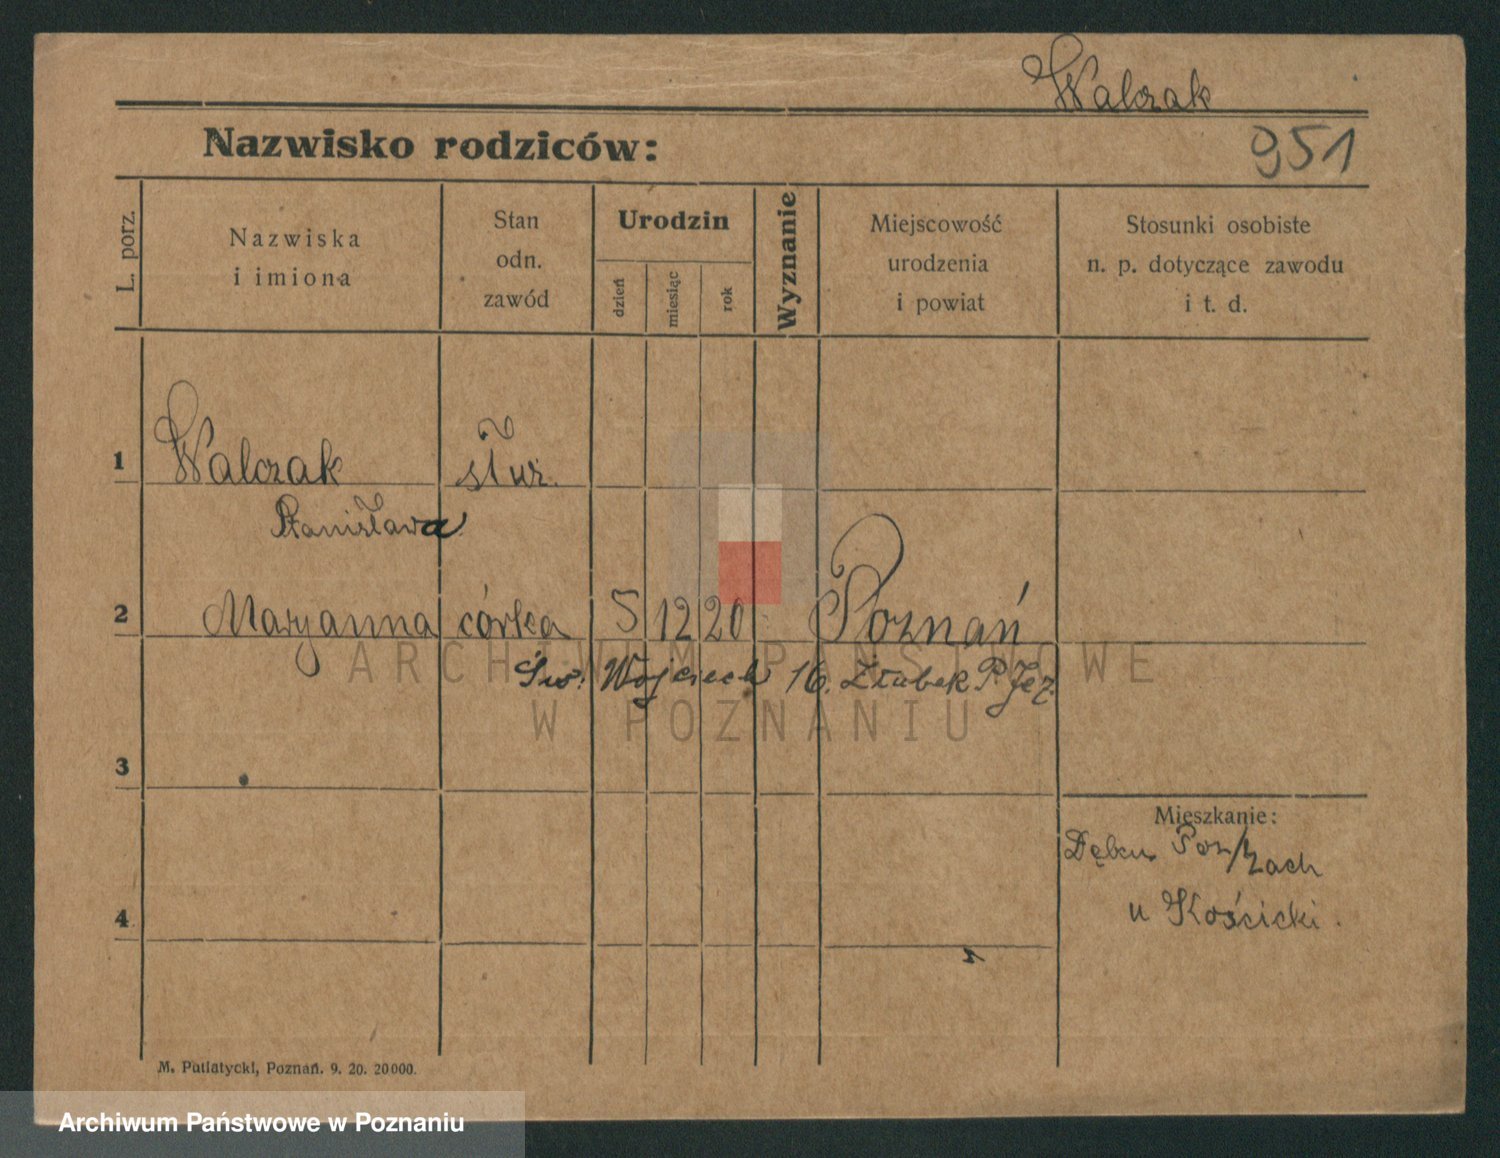 Walczak
Nazwisko rodziców:
951
L. porz.
Nazwiska
i imiona
Stan
odn.
zawód
Urodzin
dzień
miesiąc
rok
Wyznanie
Miejscowość
urodzenia
i powiat
Stosunki osobiste
n. p. dotyczące zawodu
i t. d.
1 Walczak służ.
Stanisława
2 Maryanna córka 5 12 20 Poznań
Św. Wojciech 16. Żłobek P. Jez.
3
Mieszkanie:
Poz/zach
u Kościcki.
4
M. Putiatycki, Poznań. 9. 20. 20000.
ARCHIWUM PAŃSTWOWE
W POZNANIU
Archiwum Państwowe w Poznaniu